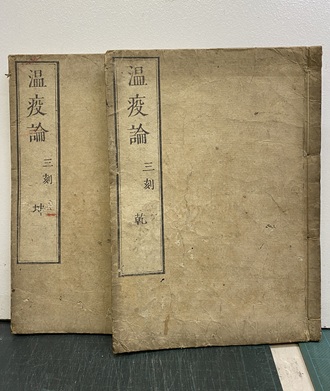 温疫論 三刻 乾
温疫論 三刻 坤